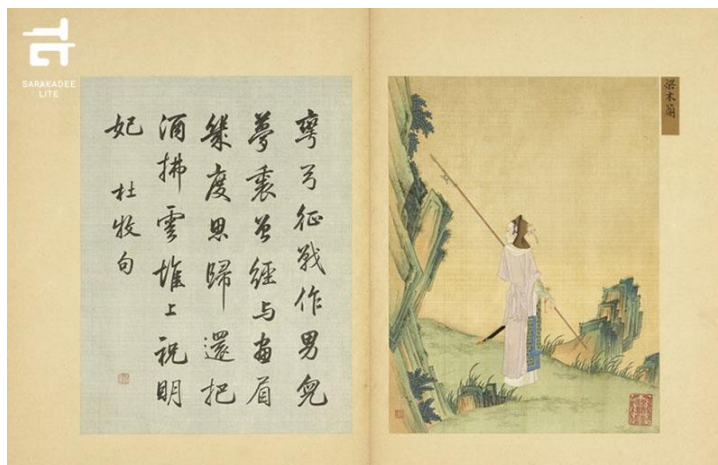 SARAKADEE
LITE
梁木蘭
彎弓征戰作男兒
夢裏曾經与畫眉
幾度思歸還把
酒拂雲堆上祝明
妃 杜牧句